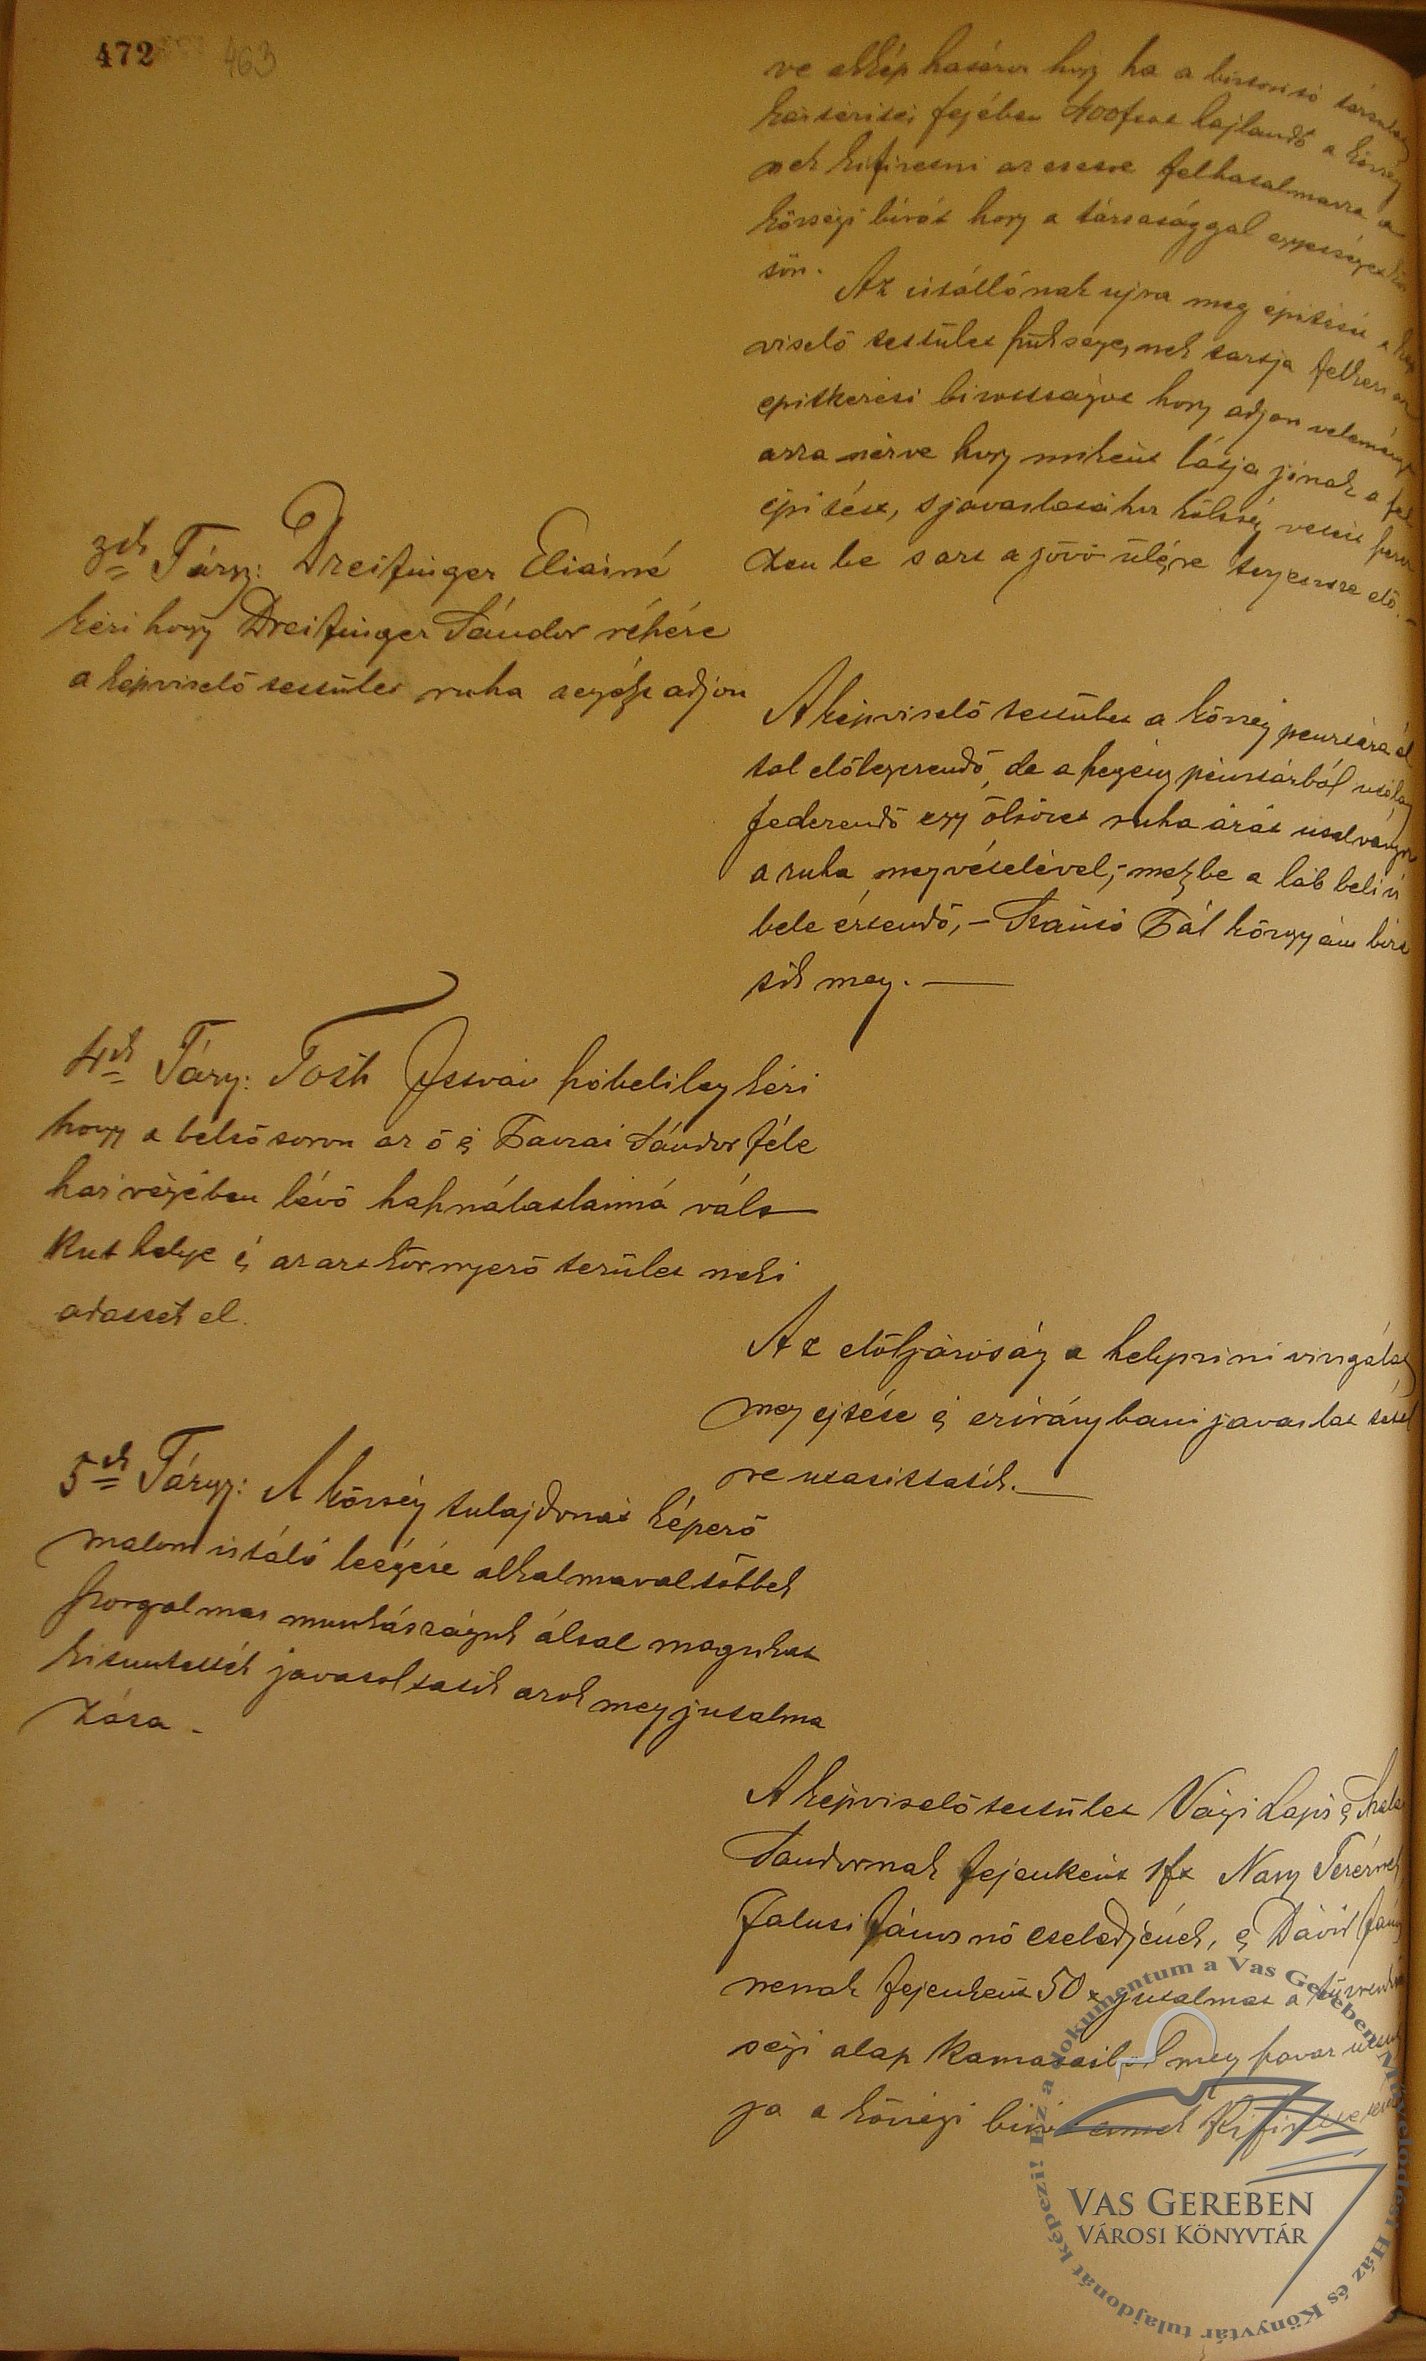 472
463
ve ekkép határoz hogy ha a biztositó társulat
kártérités fejében 400 ftot hajlandó a község
nek kifizetni az esetre felhatalmazza a
községi birót hogy a társasággal egyezséget
sön.
Az istállónak ujra meg épitését a kép
viselő testület szükségesnek tartja felkéri az
épitkezési bizottságot hogy adjon véleményt
arra nézve hogy miként látja jónak a fel
épitést, s javaslatához költség vetést
tsen be s azt a jövő ülésre terjessze elő.
3ik Tárgy: Dreiszinger Eliásné
kéri hogy Dreiszinger Sándor részére
a képviselő testület ruha segélyt adjon
A képviselő testület a község pénztára ál
tal előlegezendő, de a szegény pénztárból
fedezendő egy öltözet ruha árát utalványoz
a ruha megvételével, – melybe a láb beli is
bele értendő, – Pál közgyám biza
tik meg. —
4ik Tárgy: Tóth István szóbelileg kéri
hogy a belső soron az ő és Sándor féle
ház végében lévő használatlanná vált
kut helye és az azt környező terület neki
adassék el.
Az elöljáróság a helyszini vizsgálat
meg ejtése és ezirányban javaslat tétel
re utasittatik. —
5ik Tárgy: A község tulajdonát képező
malom istáló leégése alkalmával többek
szorgalmas munkásságuk által magukat
kitüntették javasoltatik azok megjutalma
zása.
A képviselő testület Vági Lajos és
Sandornak fejenként 1 ft Nagy Teréznek
Falusi János nő cselédjének, és Dávid
nenak fejenként 50 x jutalmat a
ségi alap kamataiból meg szavaz
ja a községi biró ennek
Ez a dokumentum a Vas Gereben Művelődési Ház és Könyvtár tulajdonát képezi!
VAS GEREBEN
VÁROSI KÖNYVTÁR